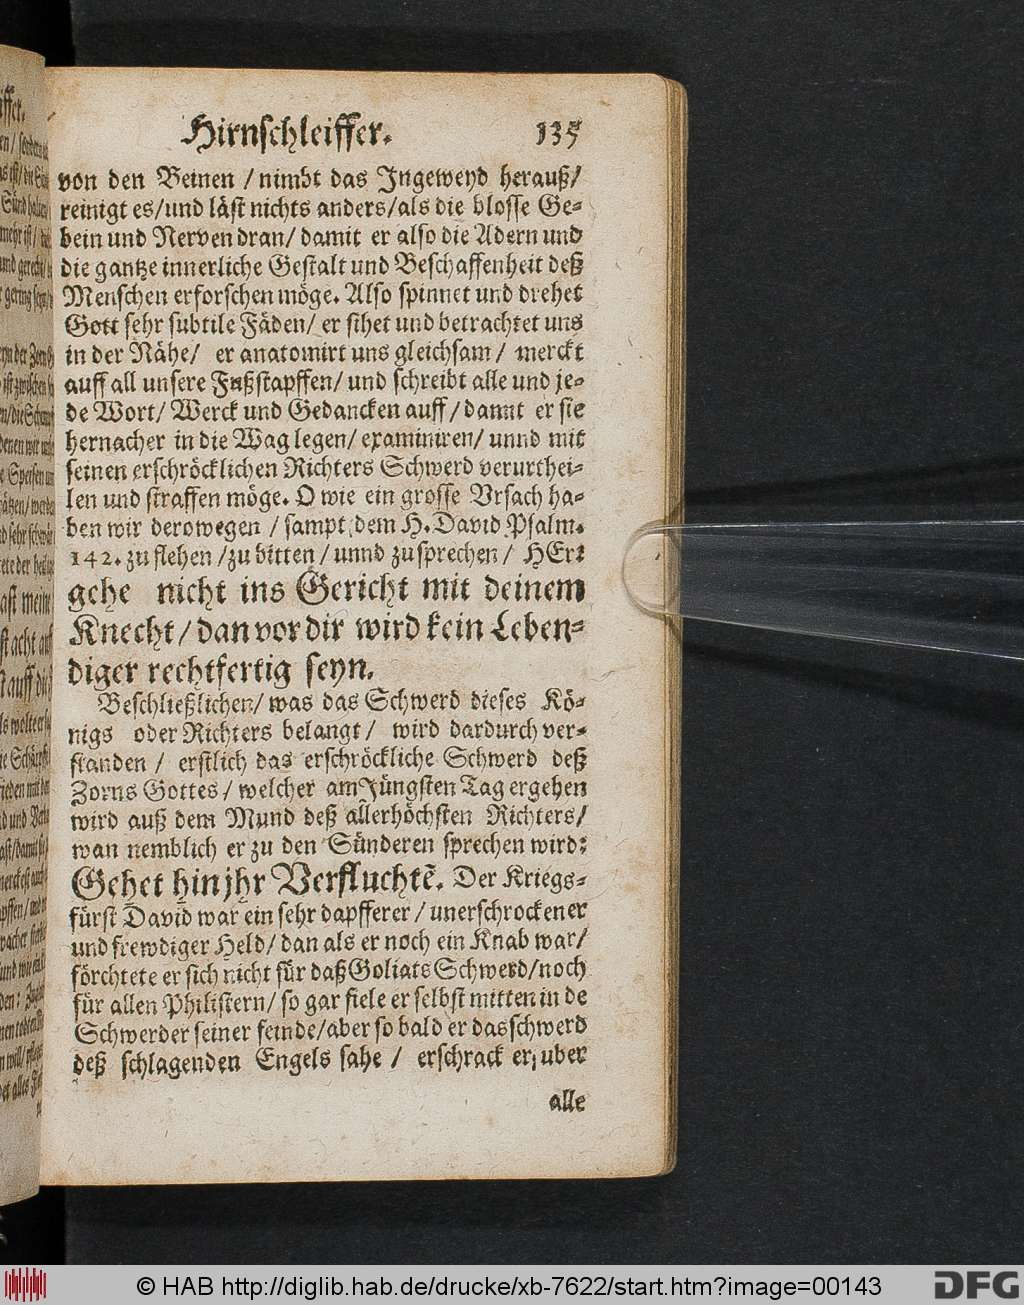 Hirnschleiffer. 135
von den Beinen / nimbt das Jngeweyd herauß/
reinigt es/und läst nichts anders/als die blosse Ge-
bein und Nerven dran/ damit er also die Adern und
die gantze innerliche Gestalt und Beschaffenheit deß
Menschen erforschen möge. Also spinnet und drehet
Gott sehr subtile Fäden/ er sihet und betrachtet uns
in der Nähe/ er anatomirt uns gleichsam / merckt
auff all unsere Fußstapffen/ und schreibt alle und je-
de Wort/ Werck und Gedancken auff / damit er sie
hernacher in die Wag legen/ examiniren/ unnd mit
seinen erschröcklichen Richters Schwerd verurthei-
len und straffen möge. O wie ein grosse Vrsach ha-
ben wir derowegen / sampt dem H. David Psalm.
142. zu flehen /zu bitten / unnd zu sprechen / HErr
gehe nicht ins Gericht mit deinem
Knecht/ dan vor dir wird kein Leben-
diger rechtfertig seyn.
Beschließlichen/ was das Schwerd dieses Kö-
nigs oder Richters belangt / wird dardurch ver-
standen / erstlich das erschröckliche Schwerd deß
Zorns Gottes / welcher am Jüngsten Tag ergehen
wird auß dem Mund deß allerhöchsten Richters/
wan nemblich er zu den Sünderen sprechen wird:
Gehet hin jhr Verfluchtē. Der Kriegs-
fürst David war ein sehr dapfferer / unerschrockener
und frewdiger Held/ dan als er noch ein Knab war/
förchtete er sich nicht für daß Goliats Schwerd/noch
für allen Philistern/ so gar fiele er selbst mitten in de
Schwerder seiner feinde/aber so bald er das schwerd
deß schlagenden Engels sahe / erschrack er; uber
alle
© HAB http://diglib.hab.de/drucke/xb-7622/start.htm?image=00143
DFG